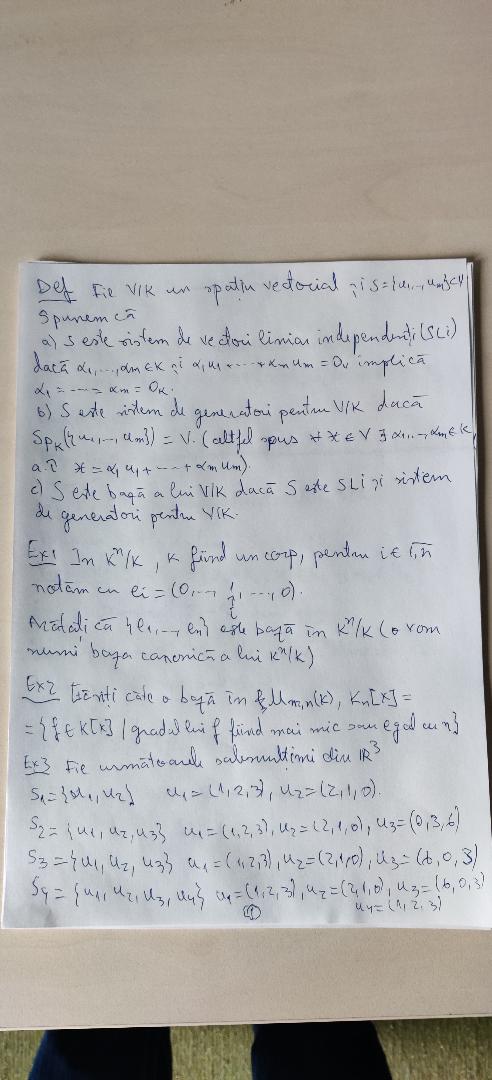 Def Fie V/K un spațiu vectorial și S={u1,..,um}⊂V
Spunem că
a) S este sistem de vectori liniar independenți (SLi)
dacă α1,...,αm∈K și α1u1+---+αmum=0v implică
α1=---=αm=0K.
b) S este sistem de generatori pentru V/K dacă
SpK({u1,--,um})=V. (altfel spus ∀ x∈V ∃ α1,--,αm∈K
a.î x=α1u1+---+αmum).
c) S este bază a lui V/K dacă S este SLi și sistem
de generatori pentru V/K.
Ex1 În K^n/K, K fiind un corp, pentru i∈1,n
notăm cu ei=(0,..,1,...,0).
i
Arătați că {e1,...,en} este bază în K^n/K (o vom
numi baza canonică a lui K^n/K)
Ex2 câte o bază în Mm,n(K), Kn[x]=
={f∈K[x] / gradul lui f fiind mai mic sau egal cu n}
Ex3 Fie următoarele submulțimi din IR^3
S1={u1,u2} u1=(1,2,3), u2=(2,1,0).
S2={u1,u2,u3} u1=(1,2,3), u2=(2,1,0), u3=(0,3,6)
S3={u1,u2,u3} u1=(1,2,3), u2=(2,1,0), u3=(6,0,3)
S4={u1,u2,u3,u4} u1=(1,2,3), u2=(2,1,0), u3=(6,0,3)
u4=(1,2,3)